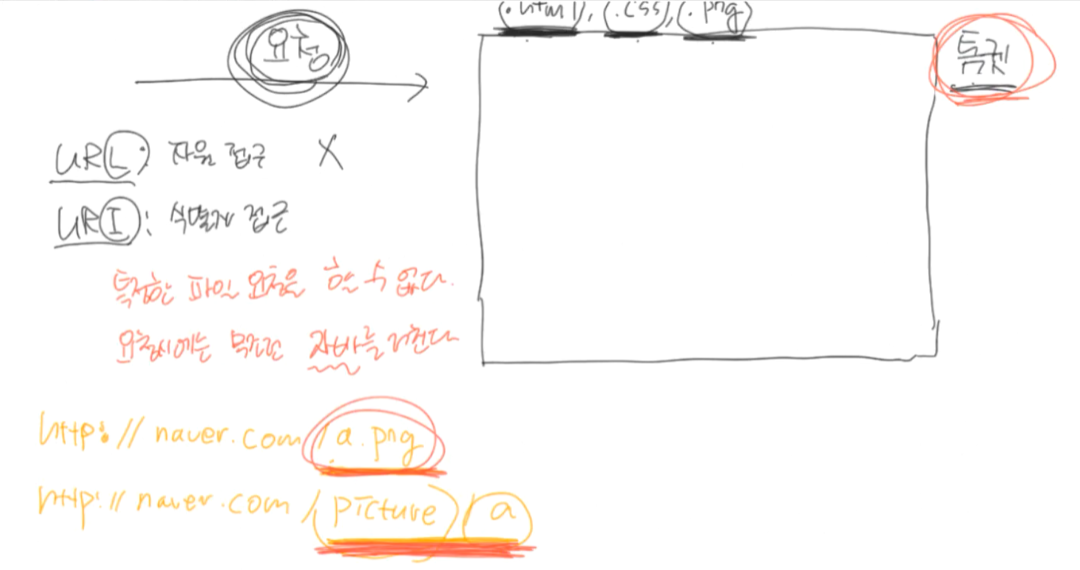 (.html), (.css), (.png)
요청
톰캣
URL: 자원 접근 X
URI: 식별자 접근
특정한 파일 요청을 할 수 없다.
요청시에는 무조건 자바를 거친다
http://naver.com/a.png
http://naver.com/picture/a